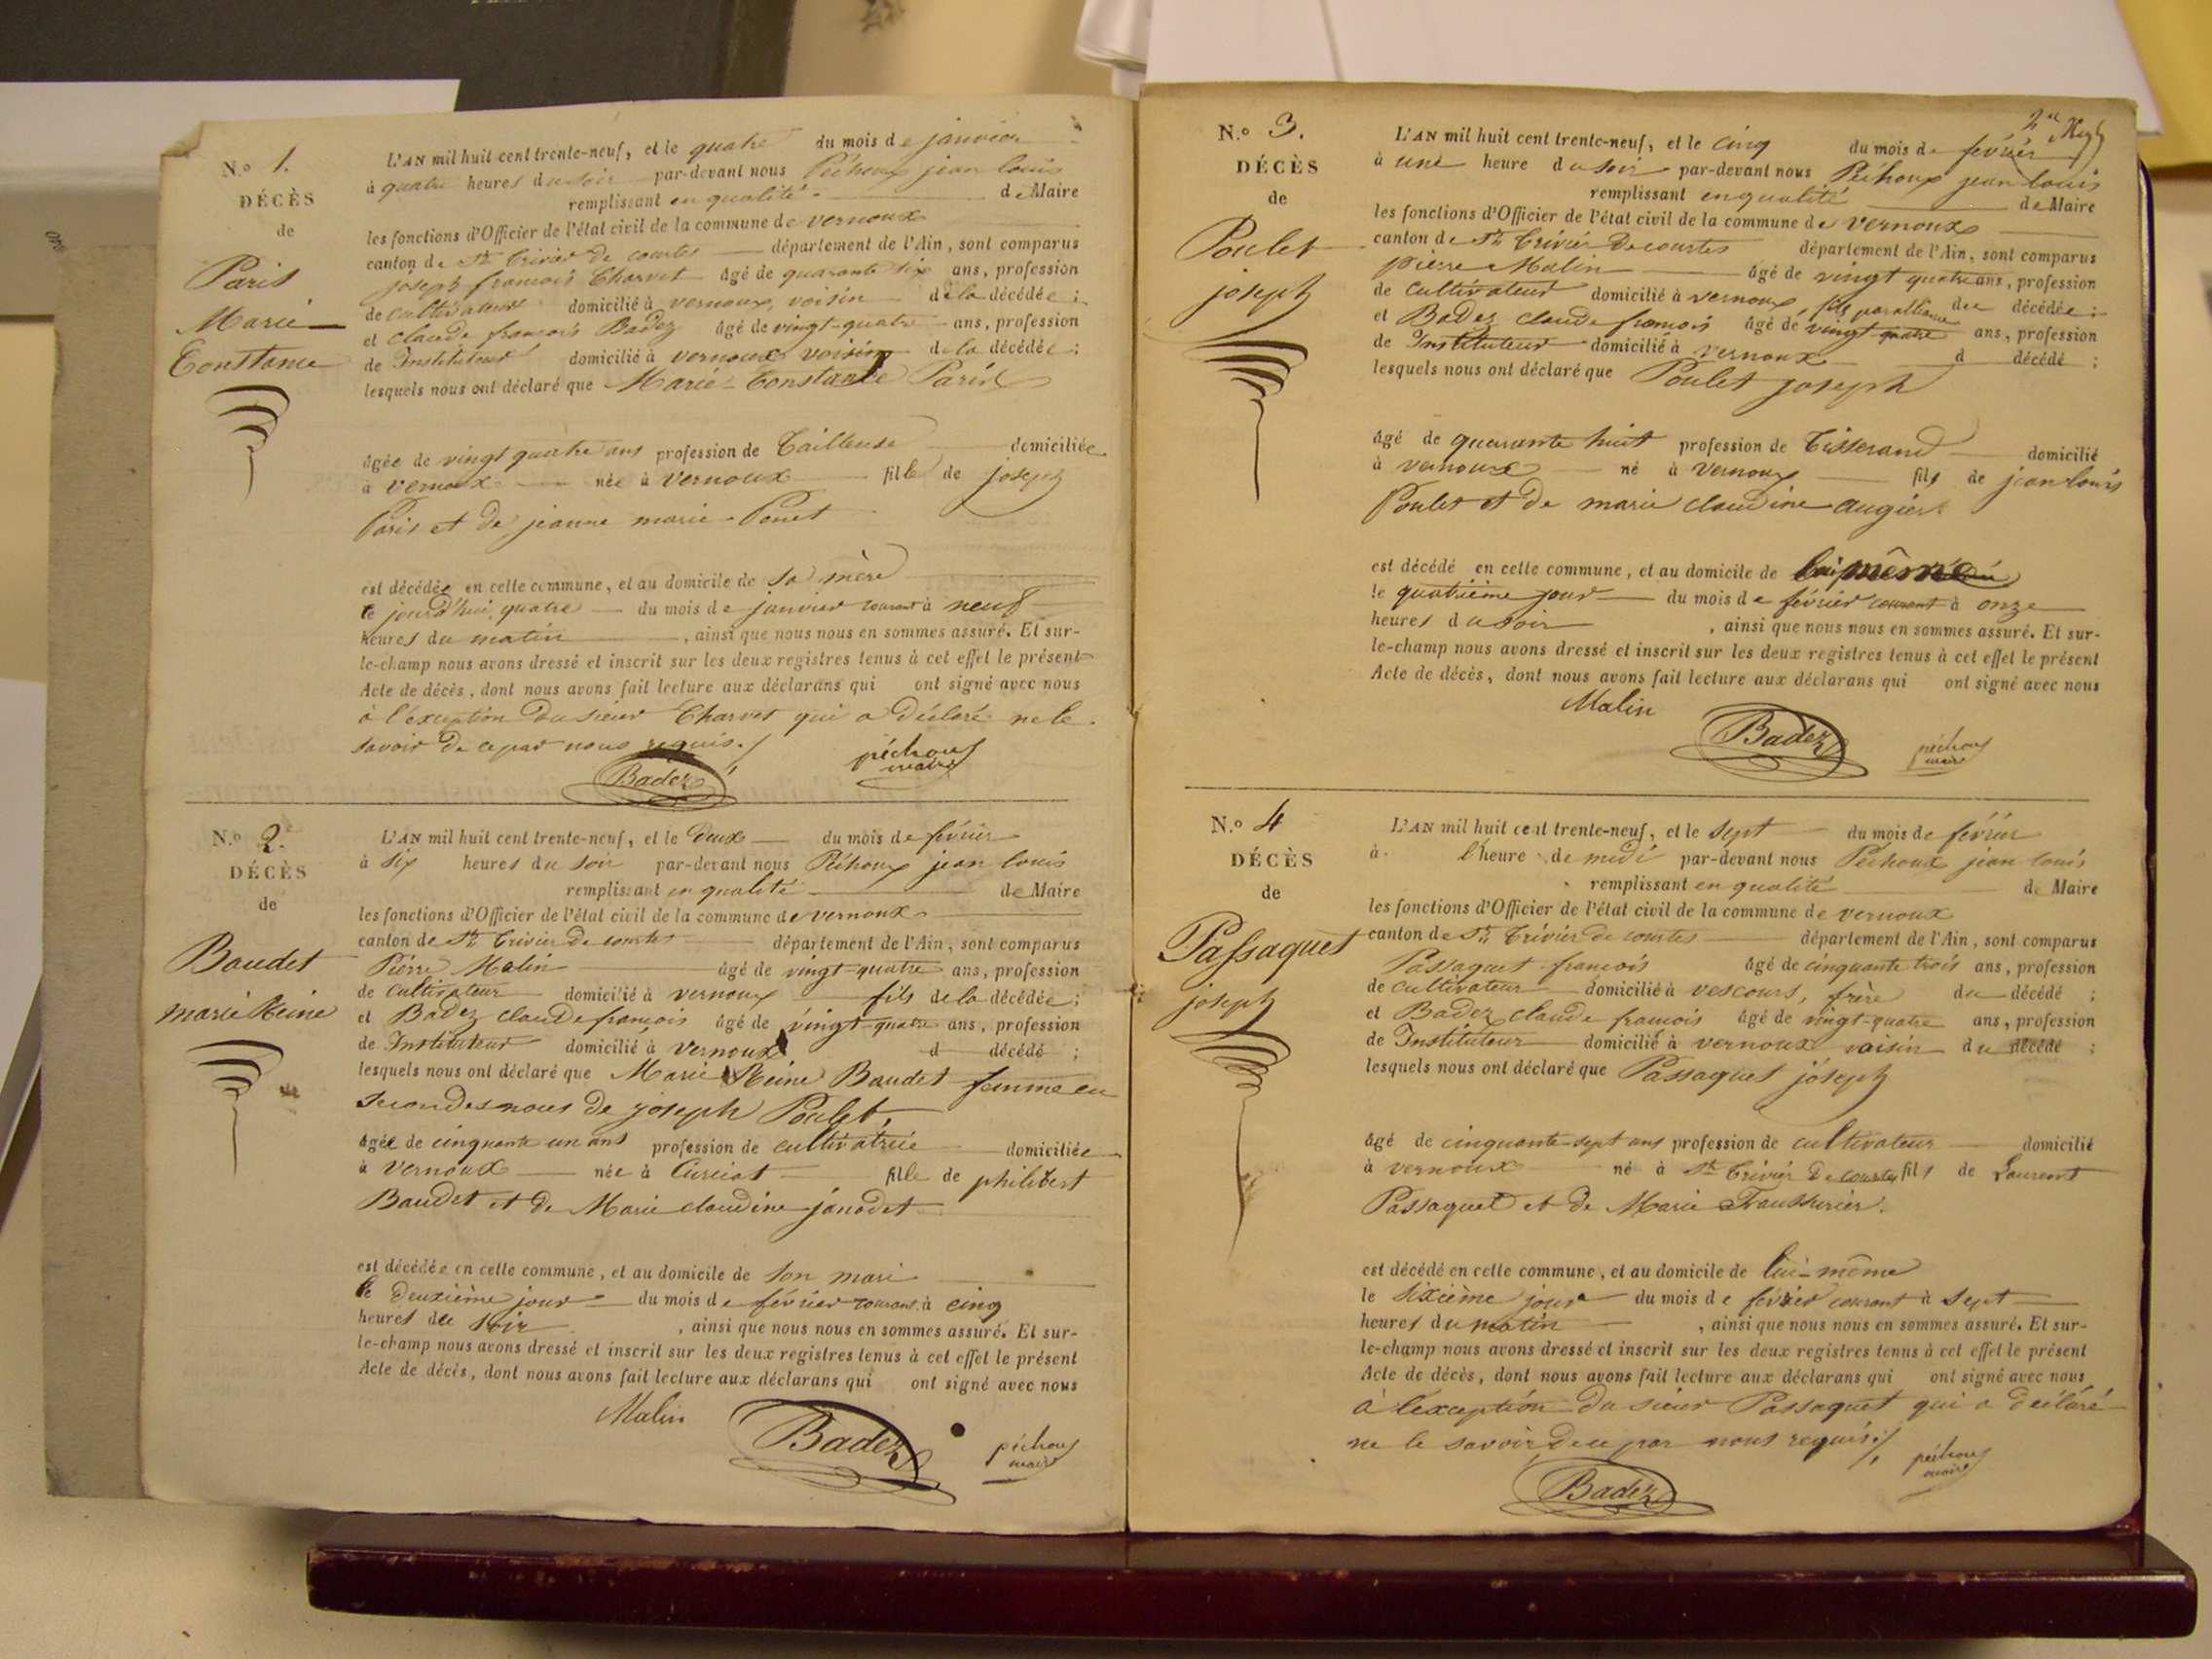 N.º 1.
DÉCÈS
de
Paris
Marie
Constance
L'AN mil huit cent trente-neuf, et le quatre du mois de janvier
à quatre heures du soir par-devant nous Péchoux jean louis
remplissant en qualité de Maire
les fonctions d'Officier de l'état civil de la commune de vernoux
canton de St. trivier de courtes département de l'Ain, sont comparus
joseph francois Charvet âgé de quarante six ans, profession
de cultivateur domicilié à vernoux, voisin de la décédée ;
et claude francois Badez âgé de vingt-quatre ans, profession
de Instituteur domicilié à vernoux voisin de la décédée ;
lesquels nous ont déclaré que Marie-Constance Paris
âgée de vingt quatre ans profession de tailleuse domiciliée
à vernoux née à vernoux fille de joseph
Paris et de jeanne marie Ponet
est décédée en cette commune, et au domicile de sa mère
le jourd'hui quatre du mois de janvier courant à neuf
heures du matin , ainsi que nous nous en sommes assuré. Et sur-
le-champ nous avons dressé et inscrit sur les deux registres tenus à cet effet le présent
Acte de décès, dont nous avons fait lecture aux déclarans qui ont signé avec nous
à l'exception du sieur Charvet qui a déclaré ne le
savoir de ce par nous requis./
Badez péchoux
maire
N.º 2.
DÉCÈS
de
Baudet
marie Reine
L'AN mil huit cent trente-neuf, et le deux du mois de février
à six heures du soir par-devant nous Péchoux jean louis
remplissant en qualité de Maire
les fonctions d'Officier de l'état civil de la commune de vernoux
canton de St. trivier de courtes département de l'Ain, sont comparus
Pierre Malin âgé de vingt-quatre ans, profession
de cultivateur domicilié à vernoux fils de la décédée ;
et Badez claude francois âgé de vingt-quatre ans, profession
de Instituteur domicilié à vernoux d décédé ;
lesquels nous ont déclaré que Marie Reine Baudet femme en
secondes noces de joseph Poulet,
âgée de cinquante un ans profession de cultivatrice domiciliée
à vernoux née à Curciat fille de philibert
Baudet et de Marie claudine janodet
est décédée en cette commune, et au domicile de son mari
le deuxième jour du mois de février courant à cinq
heures du soir , ainsi que nous nous en sommes assuré. Et sur-
le-champ nous avons dressé et inscrit sur les deux registres tenus à cet effet le présent
Acte de décès, dont nous avons fait lecture aux déclarans qui ont signé avec nous
Malin Badez péchoux
maire
N.º 3.
DÉCÈS
de
Poulet
joseph
L'AN mil huit cent trente-neuf, et le cinq du mois de février
à une heure du soir par-devant nous Péchoux jean louis
remplissant en qualité de Maire
les fonctions d'Officier de l'état civil de la commune de vernoux
canton de St. trivier de courtes département de l'Ain, sont comparus
pierre Malin âgé de vingt quatre ans, profession
de cultivateur domicilié à vernoux fils par alliance du décédé ;
et Badez claude francois âgé de vingt quatre ans, profession
de Instituteur domicilié à vernoux d décédé ;
lesquels nous ont déclaré que Poulet joseph
âgé de quarante huit profession de tisserand domicilié
à vernoux né à vernoux fils de jean louis
Poulet et de marie claudine augier
est décédé en cette commune, et au domicile de lui même
le quatrième jour du mois de février courant à onze
heures du soir , ainsi que nous nous en sommes assuré. Et sur-
le-champ nous avons dressé et inscrit sur les deux registres tenus à cet effet le présent
Acte de décès, dont nous avons fait lecture aux déclarans qui ont signé avec nous
Malin Badez péchoux
maire
N.º 4
DÉCÈS
de
Passaquet
joseph
L'AN mil huit cent trente-neuf, et le sept du mois de février
à l'heure de midi par-devant nous Péchoux jean louis
remplissant en qualité de Maire
les fonctions d'Officier de l'état civil de la commune de vernoux
canton de St. trivier de courtes département de l'Ain, sont comparus
Passaquet francois âgé de cinquante trois ans, profession
de cultivateur domicilié à vescours, frère du décédé ;
et Badez claude francois âgé de vingt-quatre ans, profession
de Instituteur domicilié à vernoux voisin du décédé ;
lesquels nous ont déclaré que Passaquet joseph
âgé de cinquante-sept ans profession de cultivateur domicilié
à vernoux né à St. trivier de courtes fils de Laurent
Passaquet et de Marie
est décédé en cette commune, et au domicile de lui-même
le sixième jour du mois de février courant à sept
heures du matin , ainsi que nous nous en sommes assuré. Et sur-
le-champ nous avons dressé et inscrit sur les deux registres tenus à cet effet le présent
Acte de décès, dont nous avons fait lecture aux déclarans qui ont signé avec nous
à l'exception du sieur Passaquet qui a déclaré
ne le savoir de ce par nous requis./,
Badez péchoux
maire